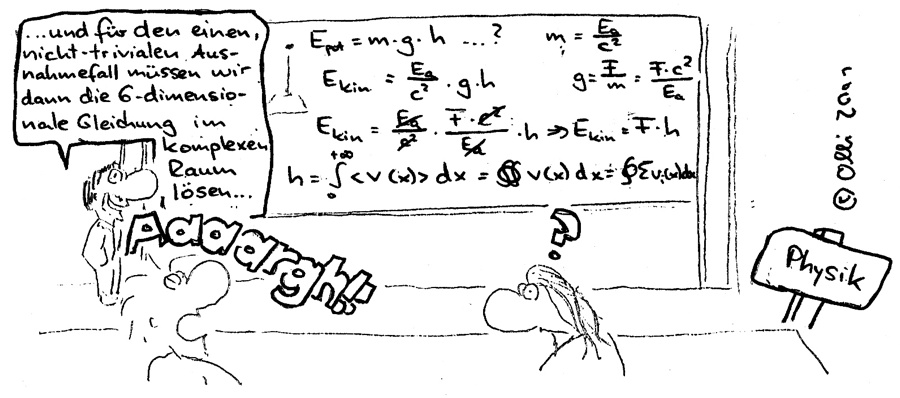 ...und für den einen,
nicht-trivialen Aus-
nahmefall müssen wir
dann die 6-dimensio-
nale Gleichung im
komplexen
Raum
lösen...
E_pot = m·g·h ...?
m = E_a/c²
E_kin = E_a/c² · g·h
g = F/m = F·c²/E_a
E_kin = E_a/c² · F·c²/E_a · h => E_kin = F·h
h = ∫₀^{+∞} <v(x)> dx = ∯ v(x) dx = ∮Σv_i(x)dx
Aaaargh!!
?
Physik